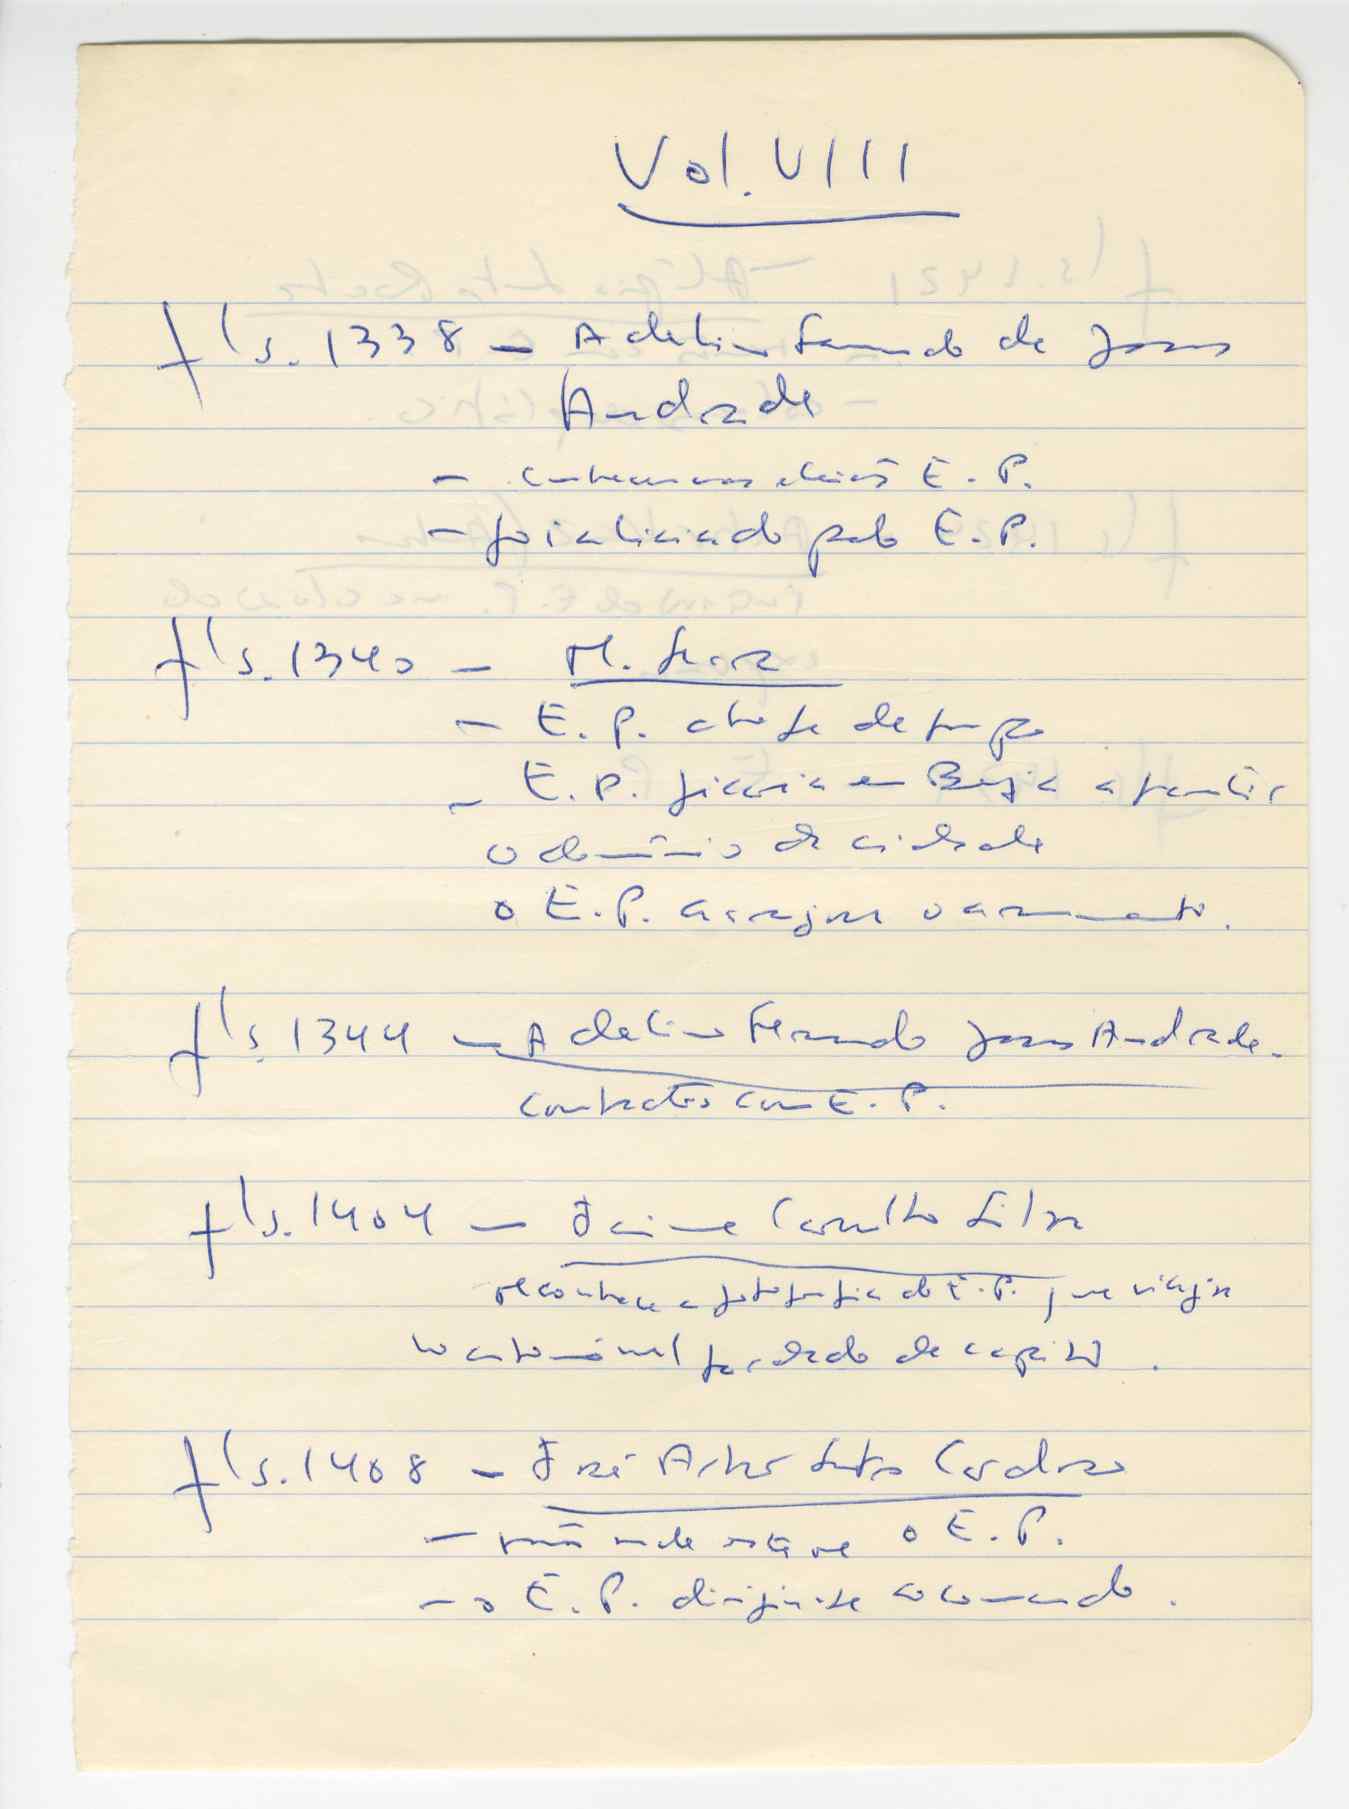 Vol. VIII
fls. 1338 – Adelino Fernando de Jesus
Andrade
– E. P.
– foi aliciado pelo E. P.
fls. 1340 – M. Serra
– E. P. chefe de grupo
– E. P. ficaria em Beja a garantir
o domínio da cidade
o E. P. arranjou o armamento.
fls. 1344 – Adelino Fernando Jesus Andrade.
contactos com E. P.
fls. 1404 – Jaime Carvalho Silva
reconhece a fotografia do E. P. que viaja
no automóvel fardado de capitão.
fls. 1408 – José Artur Cardoso
– onde esteve o E. P.
– o E. P. dirigiu-se ao comando.